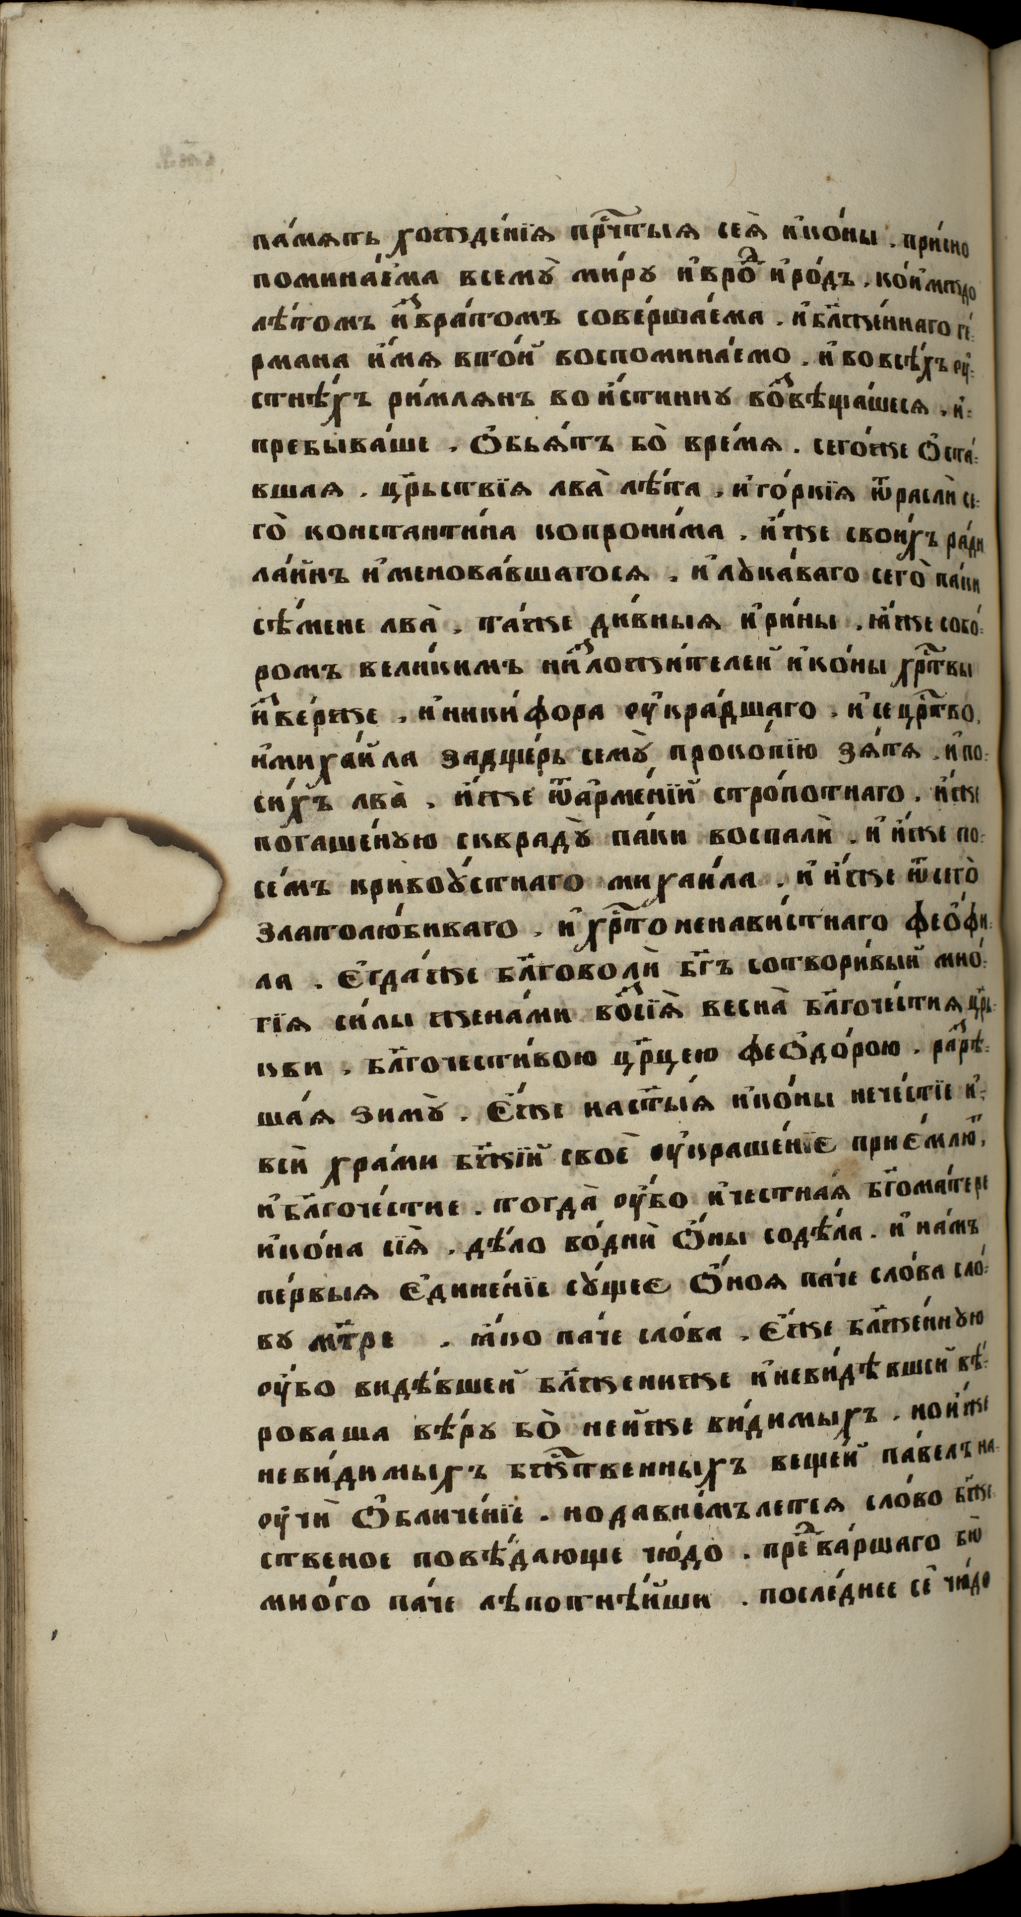 па́мѧть хожде́нїѧ прⷱ҇тыѧ сеѧ̀ и҆ко́ны . при́сно
помина́ема всемꙋ̀ ми́рꙋ и҆вроⷣ и҆ро́дъ . ко́имждо
лѣ́томъ и҆ⷥвра́томъ соверша́ема . и҆бл҃же́ннаго ге́-
рмана и҆́мѧ вто́й воспомина́емо . и҆во всѣ́хъ оу҆-
стнѣ́хъ ри́млѧнъ вои́стиннꙋ воⷥвѣща́шесѧ , и҆-
пребыва́ше . Ѻ҆бьѧ́тъ бо̀ вре́мѧ . сего́же ѻ҆ста́-
вшаѧ . цр҃ьствїѧ лва̀ лѣ́та , и҆го́ркїѧ ѿрасли се-
го̀ константи́на копрони́ма . и҆́же свои́хъ ра́ди
ла́инъ и҆менова́вшагосѧ . и҆ лꙋка́ваго сего̀ па́ки
сѣ́мене лва̀ . та́же ди́вныѧ и҆ри́ны . ꙗ҆́же собо́-
ромъ вели́кимъ ниⷥложи́телей и҆ко́ны хрⷭ҇твы
и҆ⷥве́рже . и҆ники́фора оу҆кра́дшаго . и҆се црⷭ҇тво .
и҆михаи́ла задще́рь семꙋ̀ проко́пїю зѧ́тѧ . и҆по-
си́хъ лва̀ . и҆́же ѿа҆рме́нїй стро́потнаго . и҆́же
погаше́нꙋю сквradꙋ̀ па́ки воспалѝ . и҆ и҆́же по-
се́мъ кривоꙋ́стнаго михаи́ла . и҆ и҆́же ѿсего̀
златолю́биваго . и҆ хрⷭ҇тоненави́стнаго феѻ҆фи-
ла . Е҆гда́же бл҃говолѝ бг҃ъ сотвори́вый мно́-
гїѧ си́лы жена́ми воⷥсїѧ̀ весна̀ бл҃гоче́стиѧ цр҃-
кви . бл҃гочести́вою цр҃цею феѻ҆до́рою . раⷥрѣ-
ша́ѧ зимꙋ̀ . Е҆́же наст҃ы́ѧ и҆ко́ны нече́стїе и҆-
всѝ хра́ми бж҃їй своѐ оу҆краше́нїе прие́млюⷮ .
и҆бл҃гоче́стие . тогда̀ оу҆́бо и҆честна́ѧ бг҃ома́тере
и҆ко́на сїѧ̀ . дѣ́ло во́дни ѻ҆́ны содѣ́ла . и҆ на́мъ
пе́рвыѧ е҆дине́нїе сꙋ́щее ѻ҆́ноѧ па́че сло́ва сло́-
вꙋ мт҃ре . ꙗ҆́ко па́че сло́ва . Е҆́же бл҃же́ннꙋю
оу҆́бо видѣ́вшей бл҃женнже и҆неви́дѣвшей вѣ́-
роваша вѣ́рꙋ бо̀ нейже ви́димыхъ . нои́же
неви́димыхъ бжⷭ҇твенныхъ веще́й па́велъ на-
оу҆чѝ ѻ҆бличе́нїе . нодавне́мълетсѧ сло́во бж҃е-
ственое повѣ́дающе чю́до . преⷣва́ршаго бю̀
мно́го па́че лѣпотнѣ́йши . после́днее се҆ чю́до